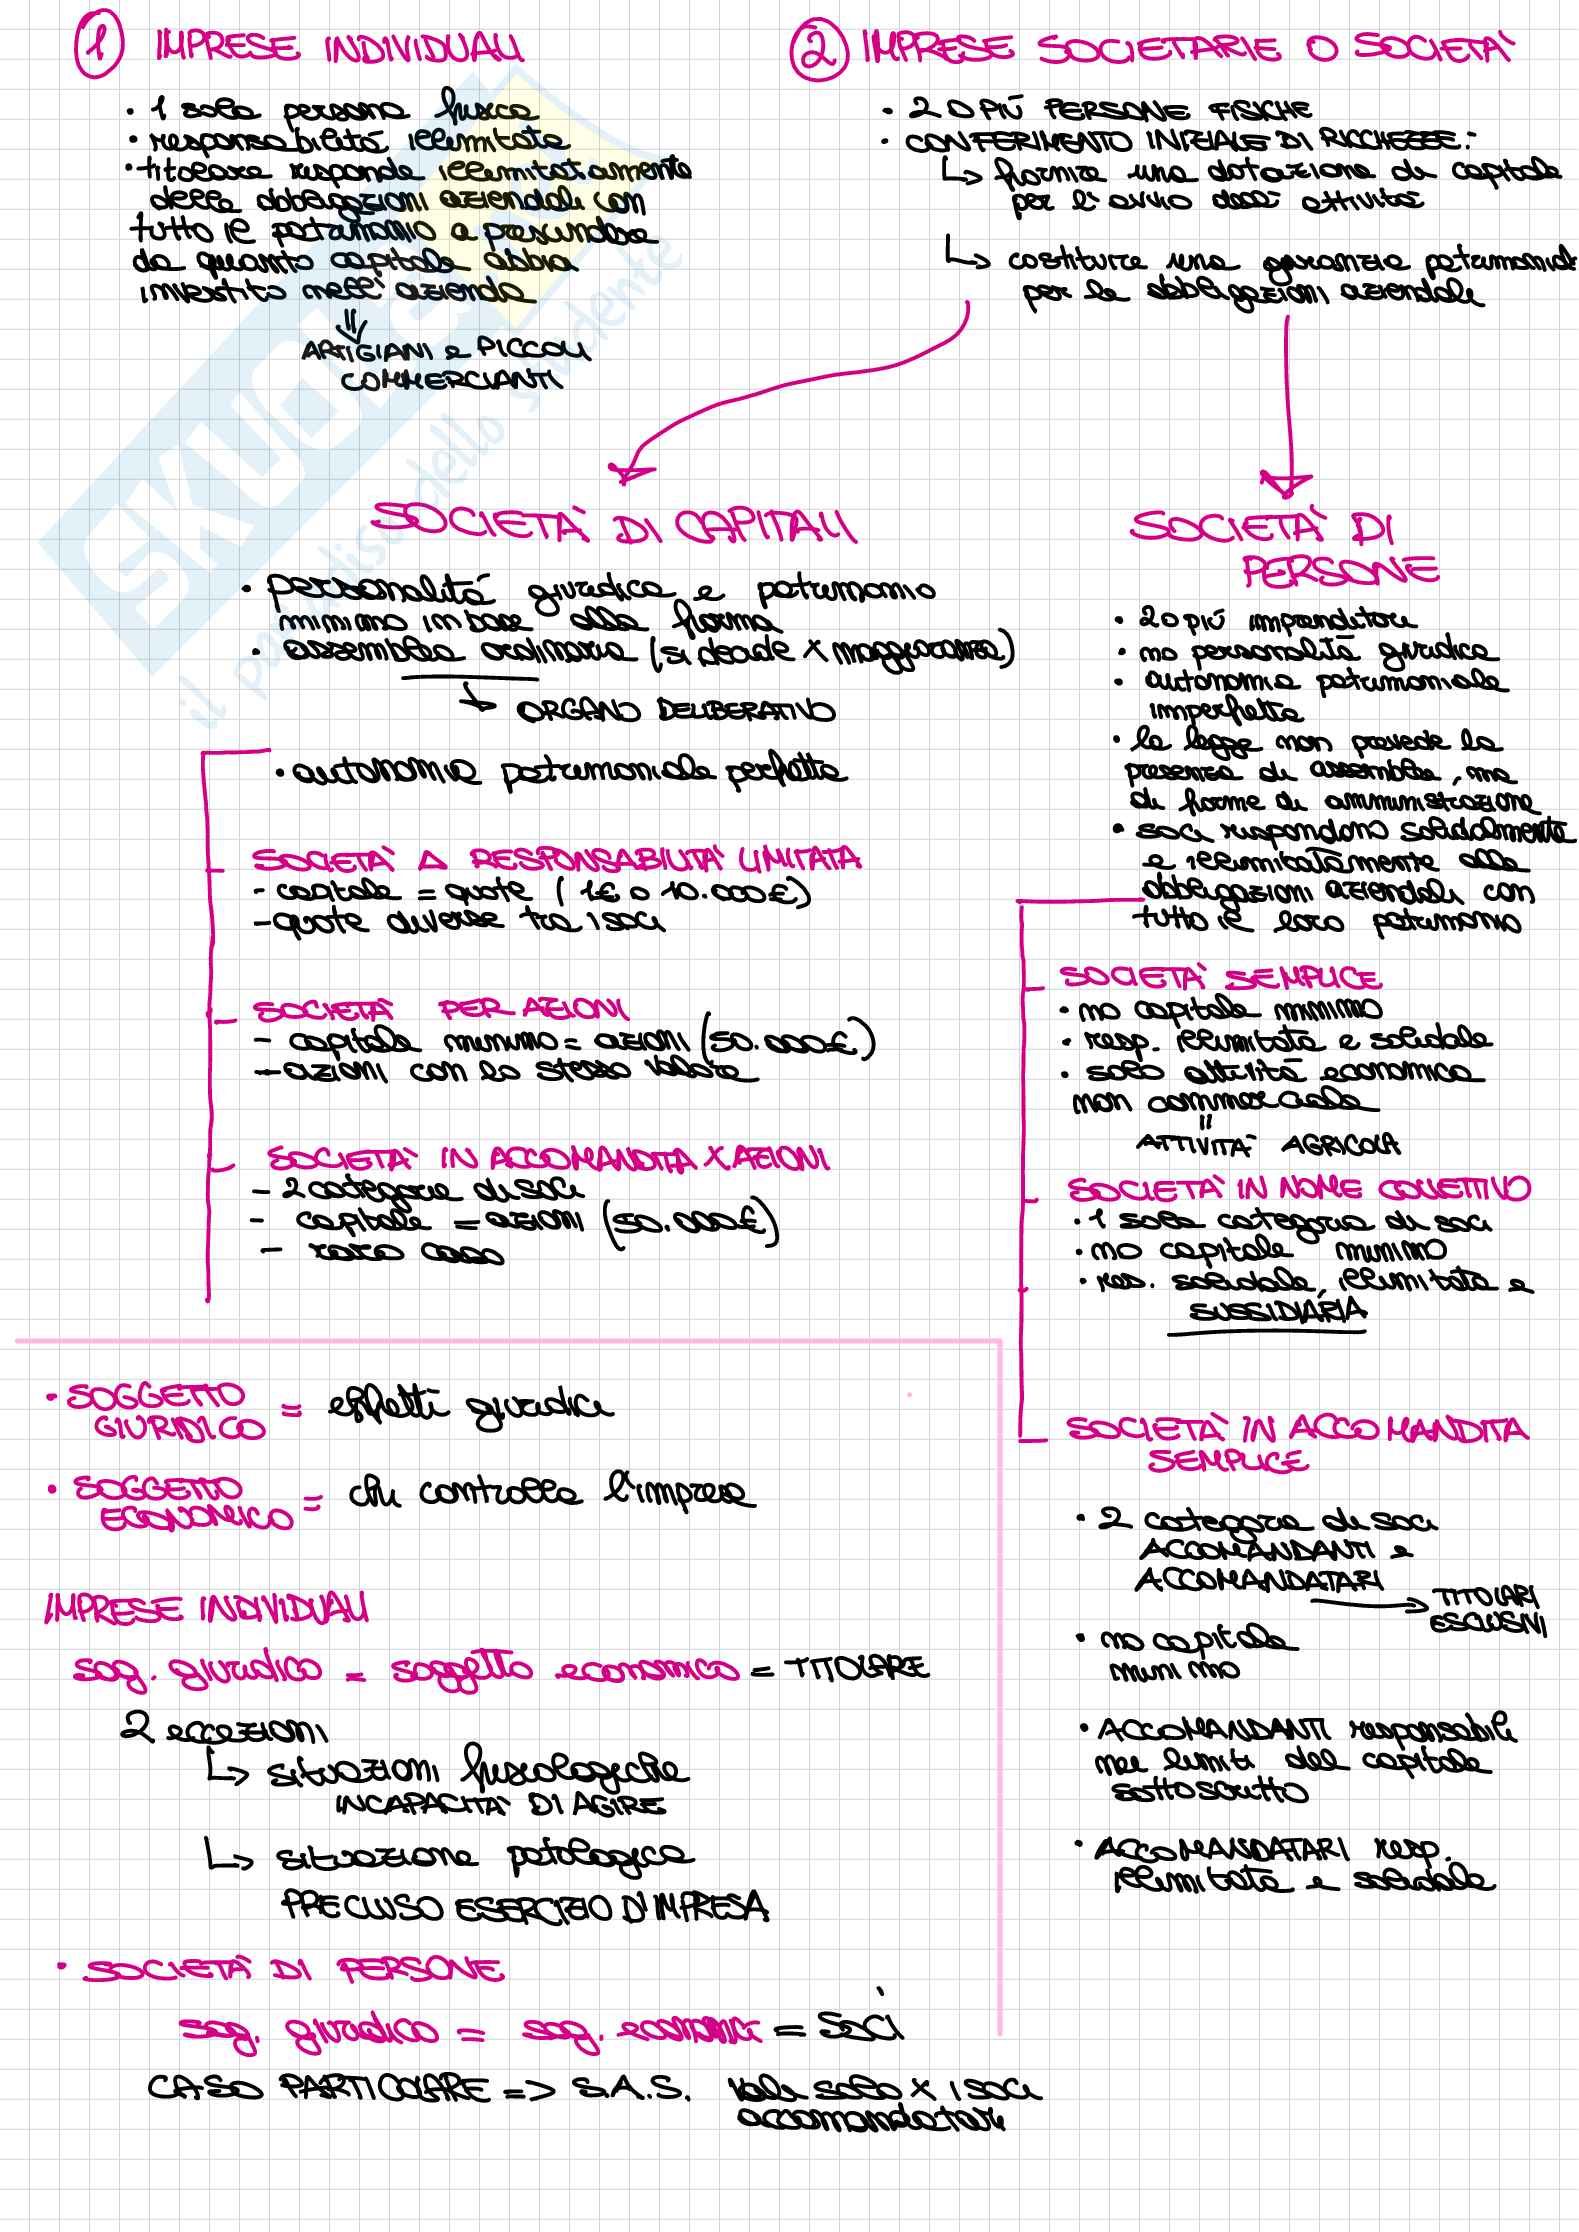 1 IMPRESE INDIVIDUALI
• 1 sola persona fisica
• responsabilità illimitata
• titolare risponde illimitatamente
delle obbligazioni aziendali con
tutto il patrimonio a prescindere
da quanto capitale abbia
investito nell'azienda
ARTIGIANI e PICCOLI
COMMERCIANTI
2 IMPRESE SOCIETARIE O SOCIETÀ
• 2 O PIÙ PERSONE FISICHE
• CONFERIMENTO INIZIALE DI RICCHEZZE:
↳ fornire una dotazione di capitale
per l'avvio dell'attività
↳ costituire una garanzia patrimoniale
per le obbligazioni aziendale
SOCIETÀ DI CAPITALI
• personalità giuridica e patrimonio
minimo in base alla forma
• assemblea ordinaria (si decide x maggioranza)
↳ ORGANO DELIBERATIVO
• autonomia patrimoniale perfetta
SOCIETÀ A RESPONSABILITÀ LIMITATA
- capitale = quote (1€ o 10.000€)
- quote diverse tra i soci
SOCIETÀ PER AZIONI
- capitale minimo = azioni (50.000€)
- azioni con lo stesso valore
SOCIETÀ IN ACCOMANDITA X AZIONI
- 2 categorie di soci
- capitale = azioni (50.000€)
- raro caso
SOCIETÀ DI
PERSONE
• 2 o più imprenditori
• no personalità giuridica
• autonomia patrimoniale
imperfetta
• la legge non prevede la
presenza di assemblee, ma
di forme di amministrazione
• soci rispondono solidalmente
e illimitatamente alle
obbligazioni aziendali con
tutto il loro patrimonio
SOCIETÀ SEMPLICE
• no capitale minimo
• resp. illimitata e solidale
• solo attività economica
non commerciale
=
ATTIVITÀ AGRICOLA
SOCIETÀ IN NOME COLLETTIVO
• 1 sola categoria di soci
• no capitale minimo
• res. solidale, illimitata e
SUSSIDIARIA
SOCIETÀ IN ACCOMANDITA
SEMPLICE
• 2 categorie di soci
ACCOMANDANTI e
ACCOMANDATARI → TITOLARI
ESCLUSIVI
• no capitale
minimo
• ACCOMANDANTI responsabili
nei limiti del capitale
sottoscritto
• ACCOMANDATARI resp.
illimitata e solidale
• SOGGETTO
GIURIDICO = effetti giuridici
• SOGGETTO
ECONOMICO = chi controlla l'impresa
IMPRESE INDIVIDUALI
sog. giuridico = soggetto economico = TITOLARE
2 eccezioni
↳ situazioni fisiologiche
INCAPACITÀ DI AGIRE
↳ situazione patologica
PRECLUSO ESERCIZIO D'IMPRESA
• SOCIETÀ DI PERSONE
sog. giuridico = sog. economici = Soci
CASO PARTICOLARE => S.A.S. vale solo x i soci
accomandatari
SKUOLA
il paradiso dello studente